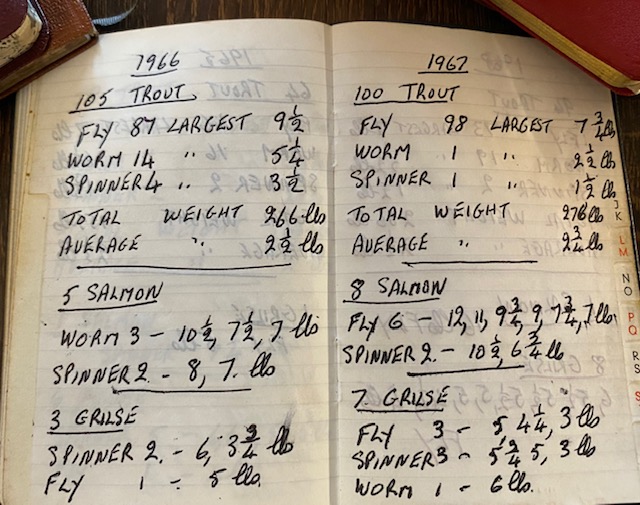 1966
105 TROUT
FLY 87 LARGEST 9½
WORM 14 " 5¼
SPINNER 4 " 3½
TOTAL WEIGHT 266 lbs
AVERAGE " 2½ lbs
5 SALMON
WORM 3 - 10½, 7½, 7 lbs
SPINNER 2. - 8, 7. lbs
3 GRILSE
SPINNER 2. - 6, 3¾ lbs
FLY 1 - 5 lbs.
1967
100 TROUT
FLY 98 LARGEST 7¾ lbs
WORM 1 " 2½ lbs
SPINNER 1 " 1½ lbs
TOTAL WEIGHT 276 lbs
AVERAGE " 2¾ lbs
8 SALMON
FLY 6 - 12, 11, 9¾, 9, 7¾, 7 lbs
SPINNER 2. - 10½, 6¾ lbs
7 GRILSE
FLY 3 - 5 4¼, 3 lbs
SPINNER 3 - 5¾ 5, 3 lbs
WORM 1 - 6 lbs.
J K
L M
N O
P Q
R S